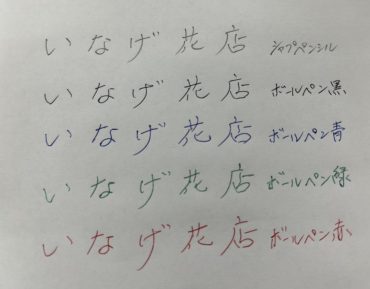 いなげ花店 シャプペンシル
いなげ花店 ボールペン黒
いなげ花店 ボールペン青
いなげ花店 ボールペン緑
いなげ花店 ボールペン赤